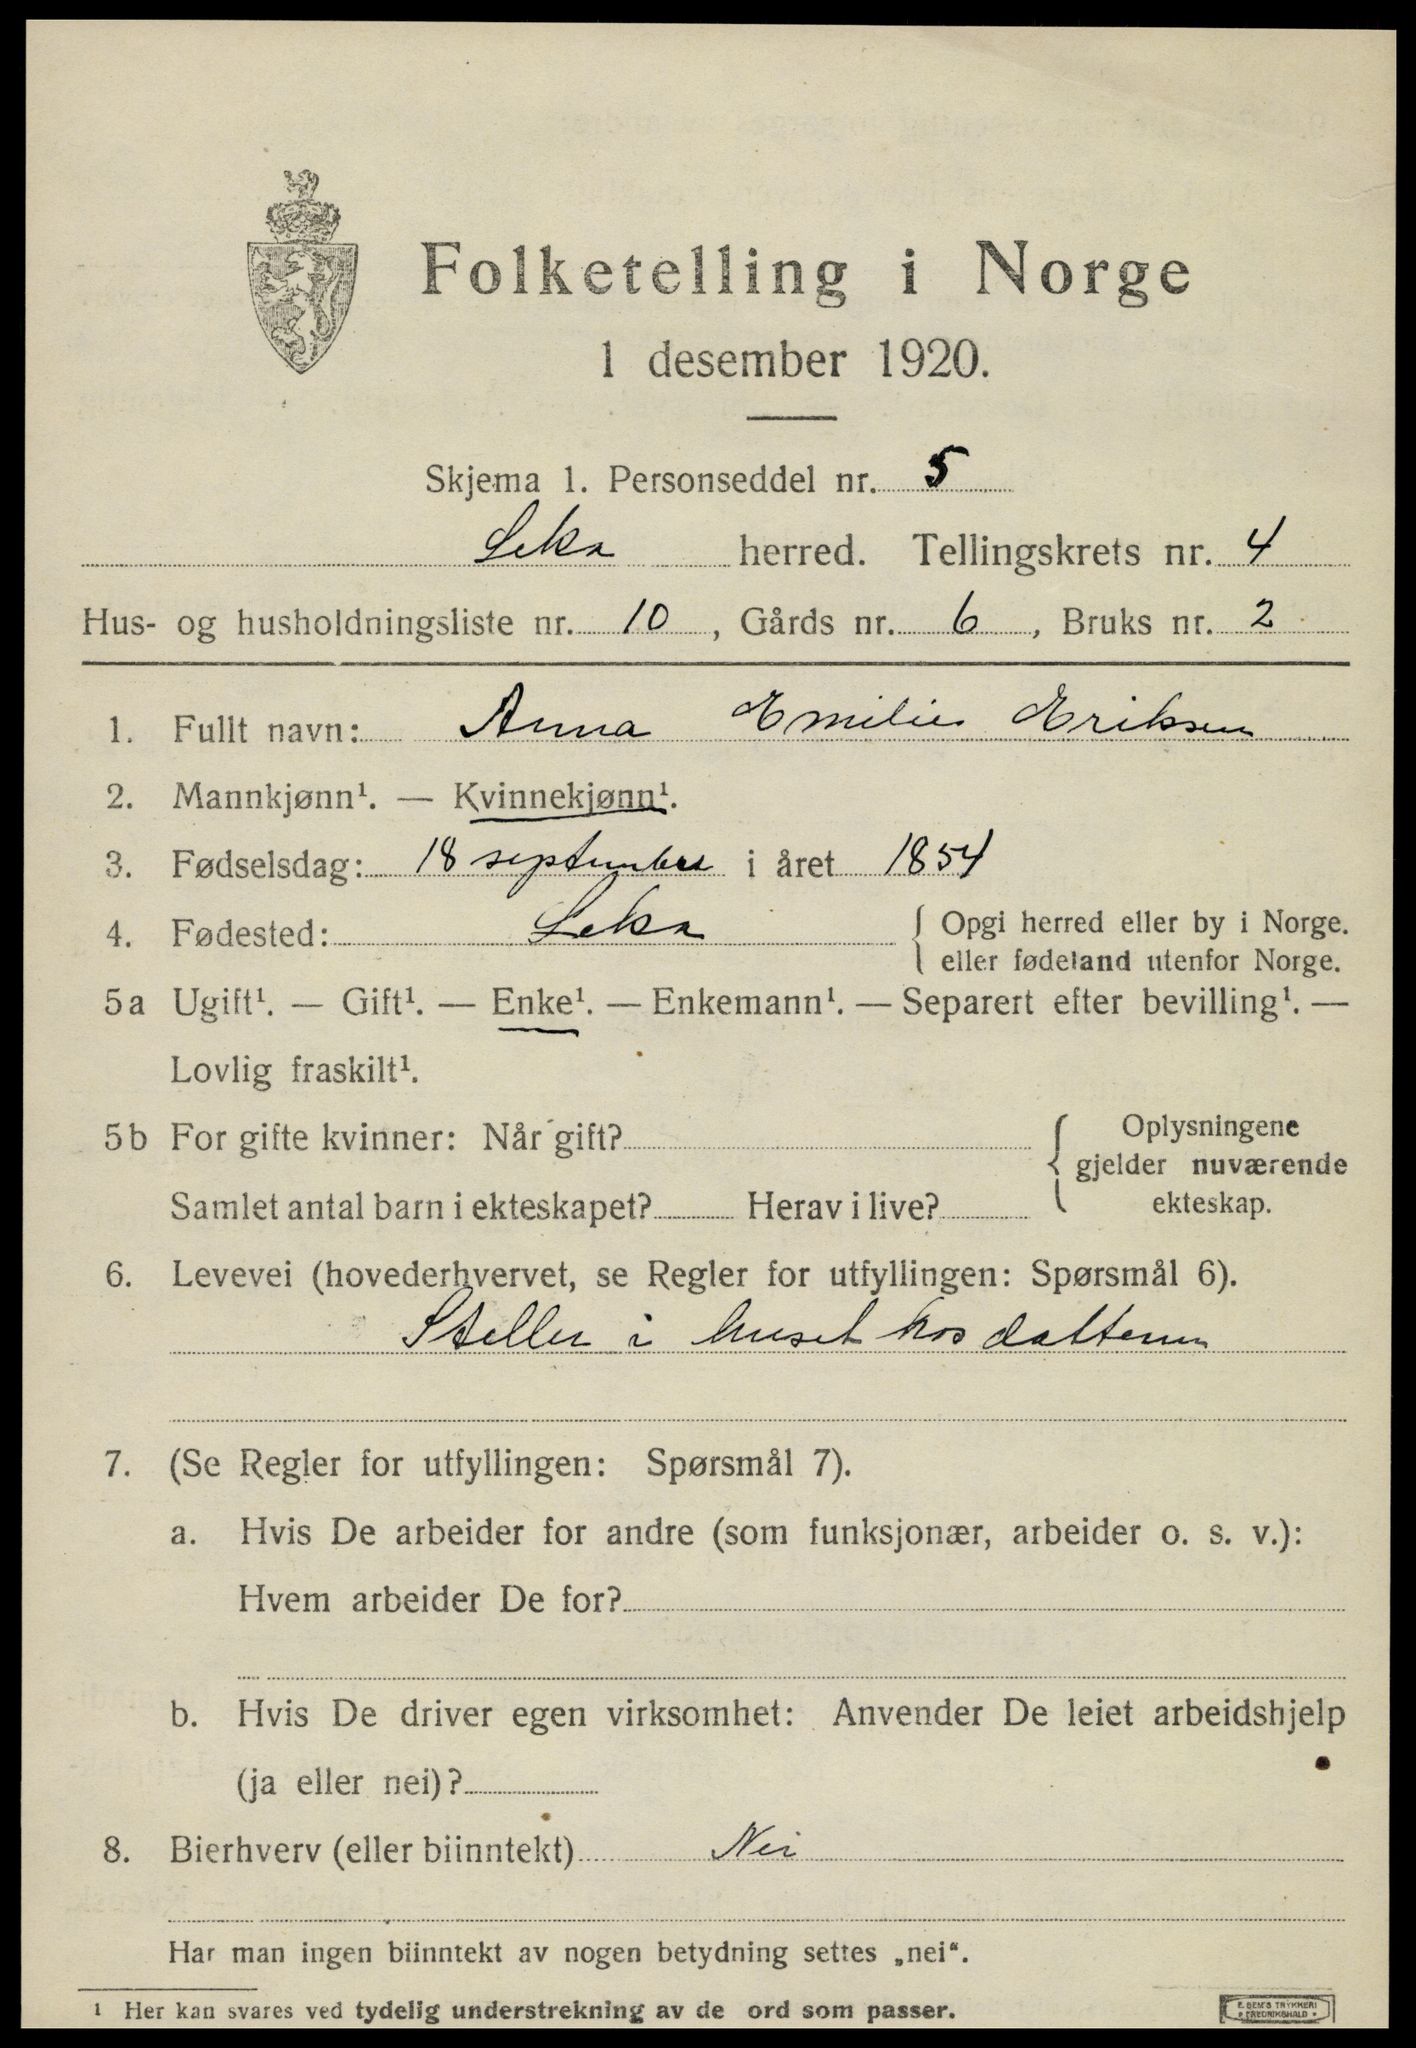 Folketelling i Norge
1 desember 1920.
Skjema 1. Personseddel nr. 5
Leka herred. Tellingskrets nr. 4
Hus- og husholdningsliste nr. 10, Gårds nr. 6, Bruks nr. 2
1. Fullt navn: Anna Emilie Eriksen
2. Mannkjønn¹. — Kvinnekjønn¹.
3. Fødselsdag: 18 september i året 1854
4. Fødested: Leka { Opgi herred eller by i Norge.
eller fødeland utenfor Norge.
5a Ugift¹. — Gift¹. — Enke¹. — Enkemann¹. — Separert efter bevilling¹. —
Lovlig fraskilt¹.
5b For gifte kvinner: Når gift? { Oplysningene
gjelder nuværende
Samlet antal barn i ekteskapet? Herav i live? ekteskap.
6. Levevei (hovederhvervet, se Regler for utfyllingen: Spørsmål 6).
Steller i huset hos datteren
7. (Se Regler for utfyllingen: Spørsmål 7).
a. Hvis De arbeider for andre (som funksjonær, arbeider o. s. v.):
Hvem arbeider De for?
b. Hvis De driver egen virksomhet: Anvender De leiet arbeidshjelp
(ja eller nei)?
8. Bierhverv (eller biinntekt) Nei
Har man ingen biinntekt av nogen betydning settes „nei“.
¹ Her kan svares ved tydelig understrekning av de ord som passer.
E. SEM'S TRYKKERI
FREDRIKSHALD